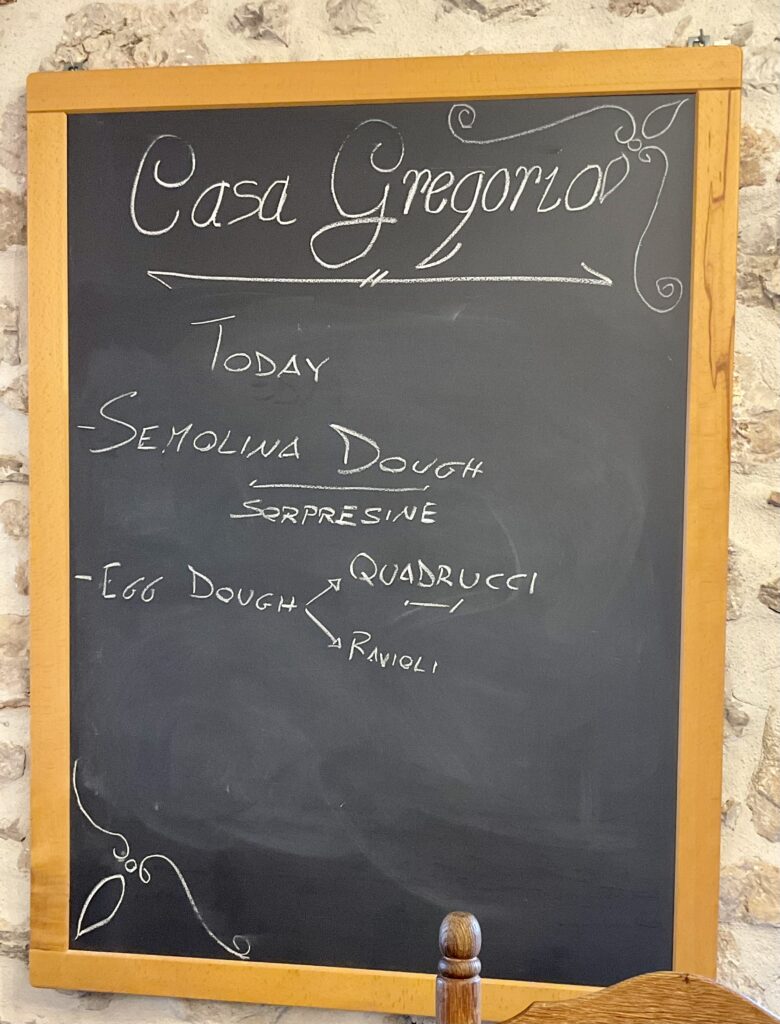 Casa Gregorio
TODAY
- SEMOLINA DOUGH
SORPRESINE
- EGG DOUGH
QUADRUCCI
RAVIOLI